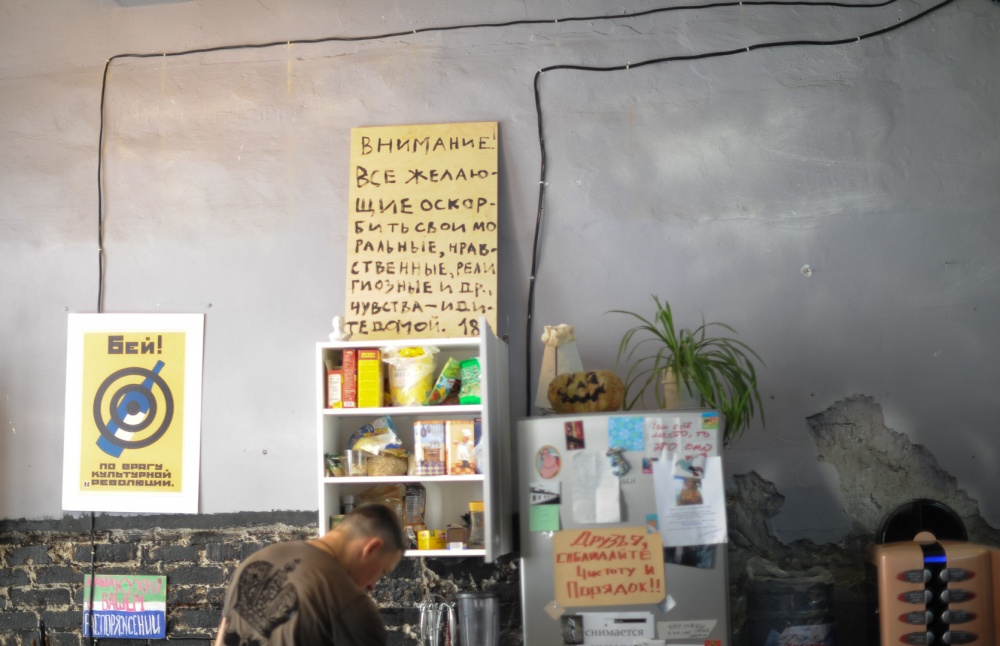 ВНИМАНИЕ!
ВСЕ ЖЕЛАЮ-
ЩИЕ ОСКОР-
БИТЬ СВОИ МО
РАЛЬНЫЕ, НРАВ-
СТВЕННЫЕ, РЕЛИ
ГИОЗНЫЕ И ДР.,
ЧУВСТВА – ИДИ-
ТЕ ДОМОЙ. 18
Бей!
ПО ВРАГУ
КУЛЬТУРНОЙ
РЕВОЛЮЦИИ.
В ВАШЕМ
РАСПОРЯЖЕНИИ
ЭТО
ДРУЗЬЯ,
СОБЛЮДАЙТЕ
ЧИСТОТУ И
ПОРЯДОК!!
снимается